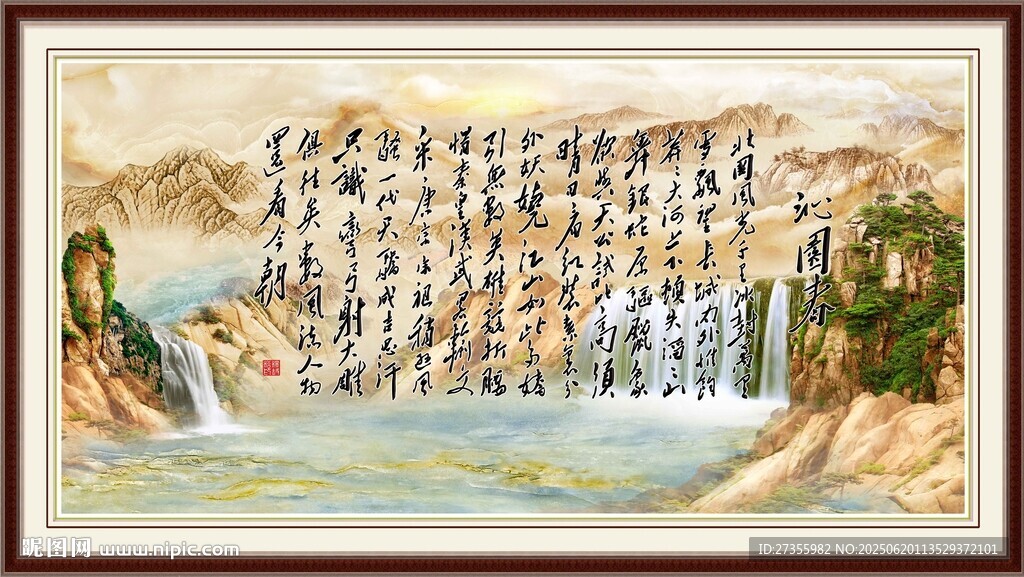 沁園春
北國風光千里冰封萬里
雪飄望長城內外惟餘
莽々大河上下頓失滔々山
舞銀蛇原驅臘象
欲與天公試比高須
晴日看紅裝素裹分
外妖嬈江山如此多嬌
引無數英雄競折腰
惜秦皇漢武略輸文
采唐宗宋祖稍遜風
騷一代天驕成吉思汗
只識彎弓射大雕
俱往矣數風流人物
還看今朝
昵图网 www.nipic.com
ID:27355982 NO:20250620113529372101